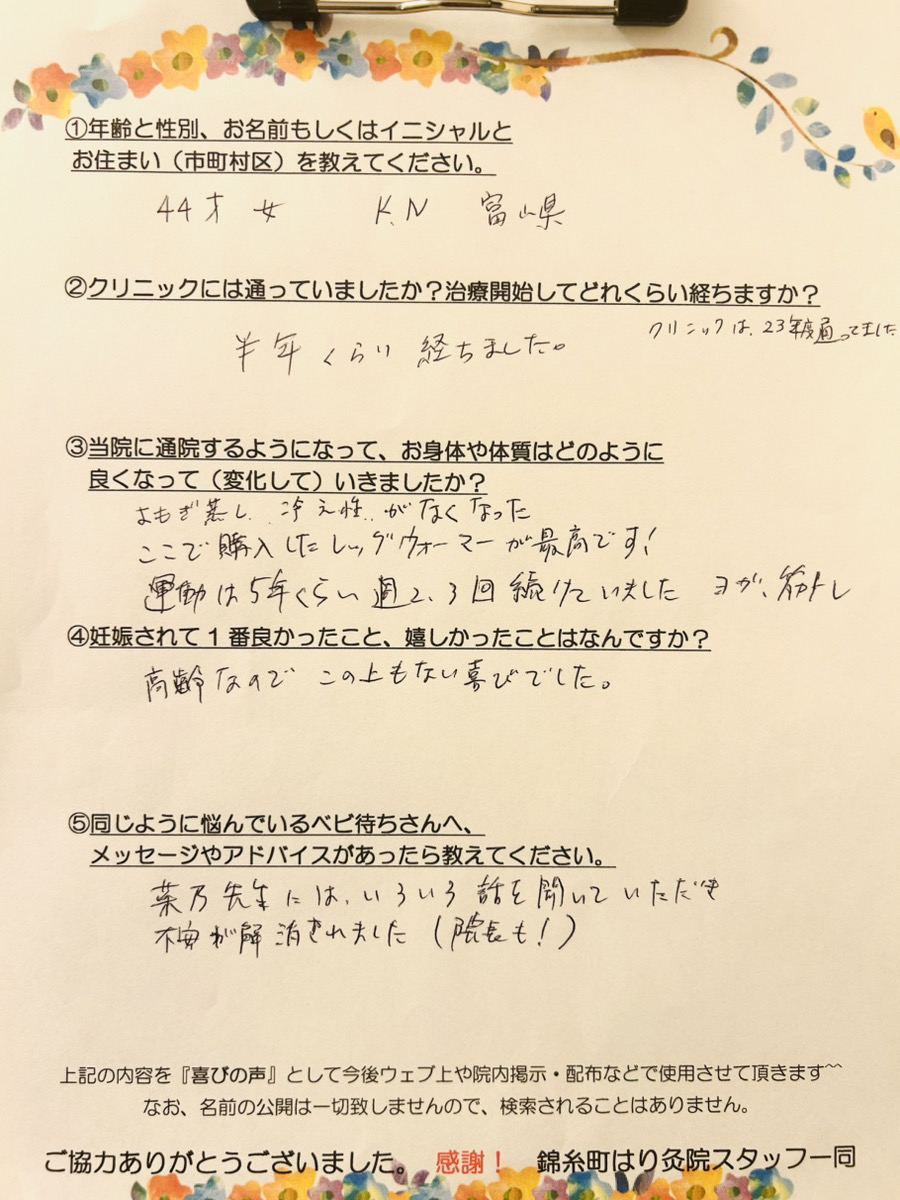 ①年齢と性別、お名前もしくはイニシャルと
お住まい（市町村区）を教えてください。
44才 女 K.N 富山県
②クリニックには通っていましたか？治療開始してどれくらい経ちますか？
クリニックは、23年度通ってました
半年くらい 経ちました。
③当院に通院するようになって、お身体や体質はどのように
良くなって（変化して）いきましたか？
よもぎ蒸し、冷え性がなくなった
ここで購入したレッグウォーマーが最高です！
運動は5年くらい週2、3回続けていました ヨガ、筋トレ
④妊娠されて１番良かったこと、嬉しかったことはなんですか？
高齢なので この上もない喜びでした。
⑤同じように悩んでいるベビ待ちさんへ、
メッセージやアドバイスがあったら教えてください。
菜乃先生には、いろいろ話を聞いていただき
不安が解消されました（院長も！）
上記の内容を『喜びの声』として今後ウェブ上や院内掲示・配布などで使用させて頂きます^^
なお、名前の公開は一切致しませんので、検索されることはありません。
ご協力ありがとうございました。 感謝！ 錦糸町はり灸院スタッフ一同